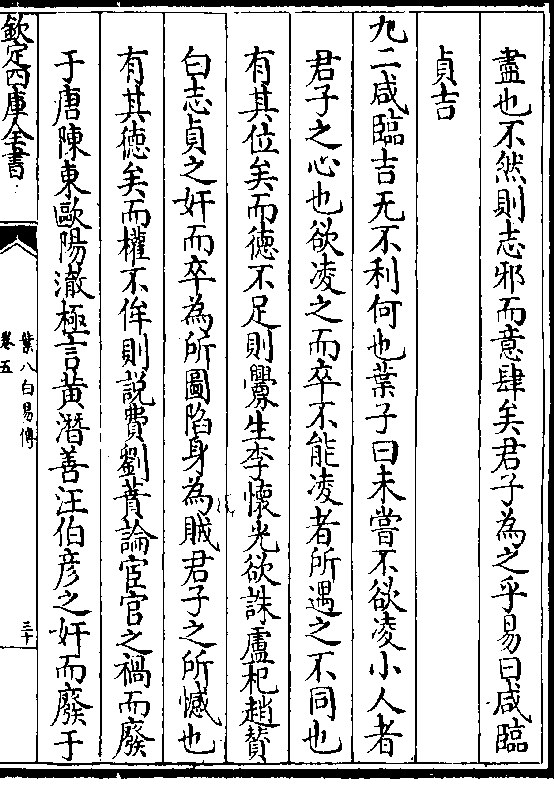 盡也不然則志邪而意肆矣君子為之乎易曰咸臨
貞吉
九二咸臨吉无不利何也葉子曰未嘗不欲凌小人者
君子之心也欲凌之而卒不能凌者所遇之不同也
有其位矣而徳不足則釁生李懷光欲誅盧杞趙賛
白志貞之奸而卒為所圖陷身為賊君子之所憾也
有其徳矣而權不侔則説費劉蕡論宦官之禍而廢
于唐陳東歐陽澈極言黄潛善汪伯彦之奸而廢于
欽定四庫全書
葉八白易傳
卷五
三十